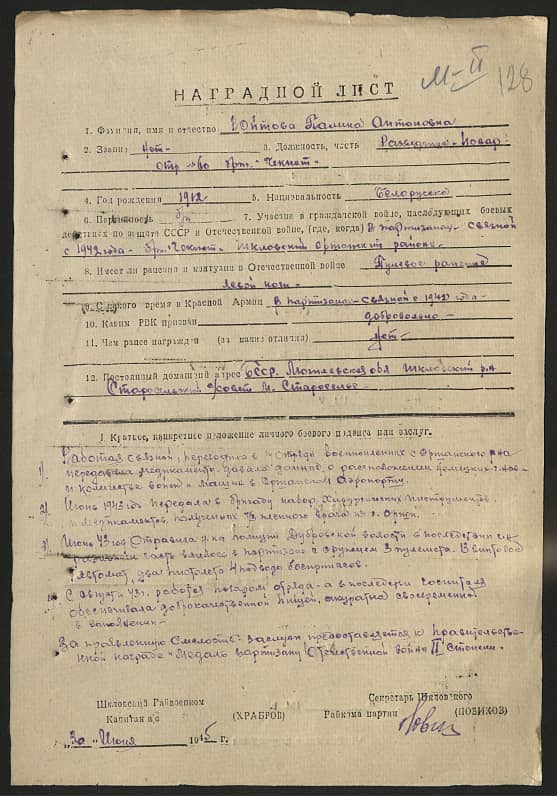 М-II 128
НАГРАДНОЙ ЛИСТ
1. Фамилия, имя и отчество Юитова Полина Антоновна
2. Звание Нет- 3. Должность, часть Разведчица-Повар-
бриг. "Чекист"-
4. Год рождения 1912 5. Национальность Белоруска
6. Партийность б/п 7. Участие в гражданской войне, последующих боевых
действиях по защите СССР и Отечественной войне, (где, когда) в партизанах связной
с 1942 года - бриг. "Чекист" - Шкловский Оршанский районе-
8. Имеет ли ранения и контузии в Отечественной войне Пулевое ранение
левой ноги-
9. С какого время в Красной Армии в партизанах связной с 1942 года-
10. Каким РВК призван добровольно-
11. Чем ранее награжден (за какие отличия) Нет-
12. Постоянный домашний адрес БССР. Могилевская обл Шкловский р-н
Старосельский с/совет Староселье-
I. Краткое, конкретное изложение личного боевого подвига или заслуг.
1) Работая связной, переводила в отряд военнопленных с Оршанского р-на
передавала медикаменты. давала данные о расположении немецких
и количестве войск и машин в Оршанском аэропорту.
2) Июнь 1943 год передала в бригаду набор Хирургических инструментов
и медикаментов, полученых врача из г. Орши.
3) Июнь 43 год Отправила полиции Дубровской волости в последствии
часть влилось в партизаны с оружием 3 пулемета. винтовок
1 автомат, два пистолета 4 подвода боеприпасов.
4) С августа 43 г. работая поваром отряда - а в последствии госпиталя
обеспечивала доброкачественной пищей, акуратна своевременной
в исполнении-
За проявленную смелость: заслуги предоставляется к правительстве-
нной награде "Медаль партизану Отечественной войны II Степени.-
Шкловский Райвоенком
Капитан а/с (ХРАБРОВ)
Секретарь Шкловского
Райкома партии (НОВИКОВ)
"30" Июня 1945 г.